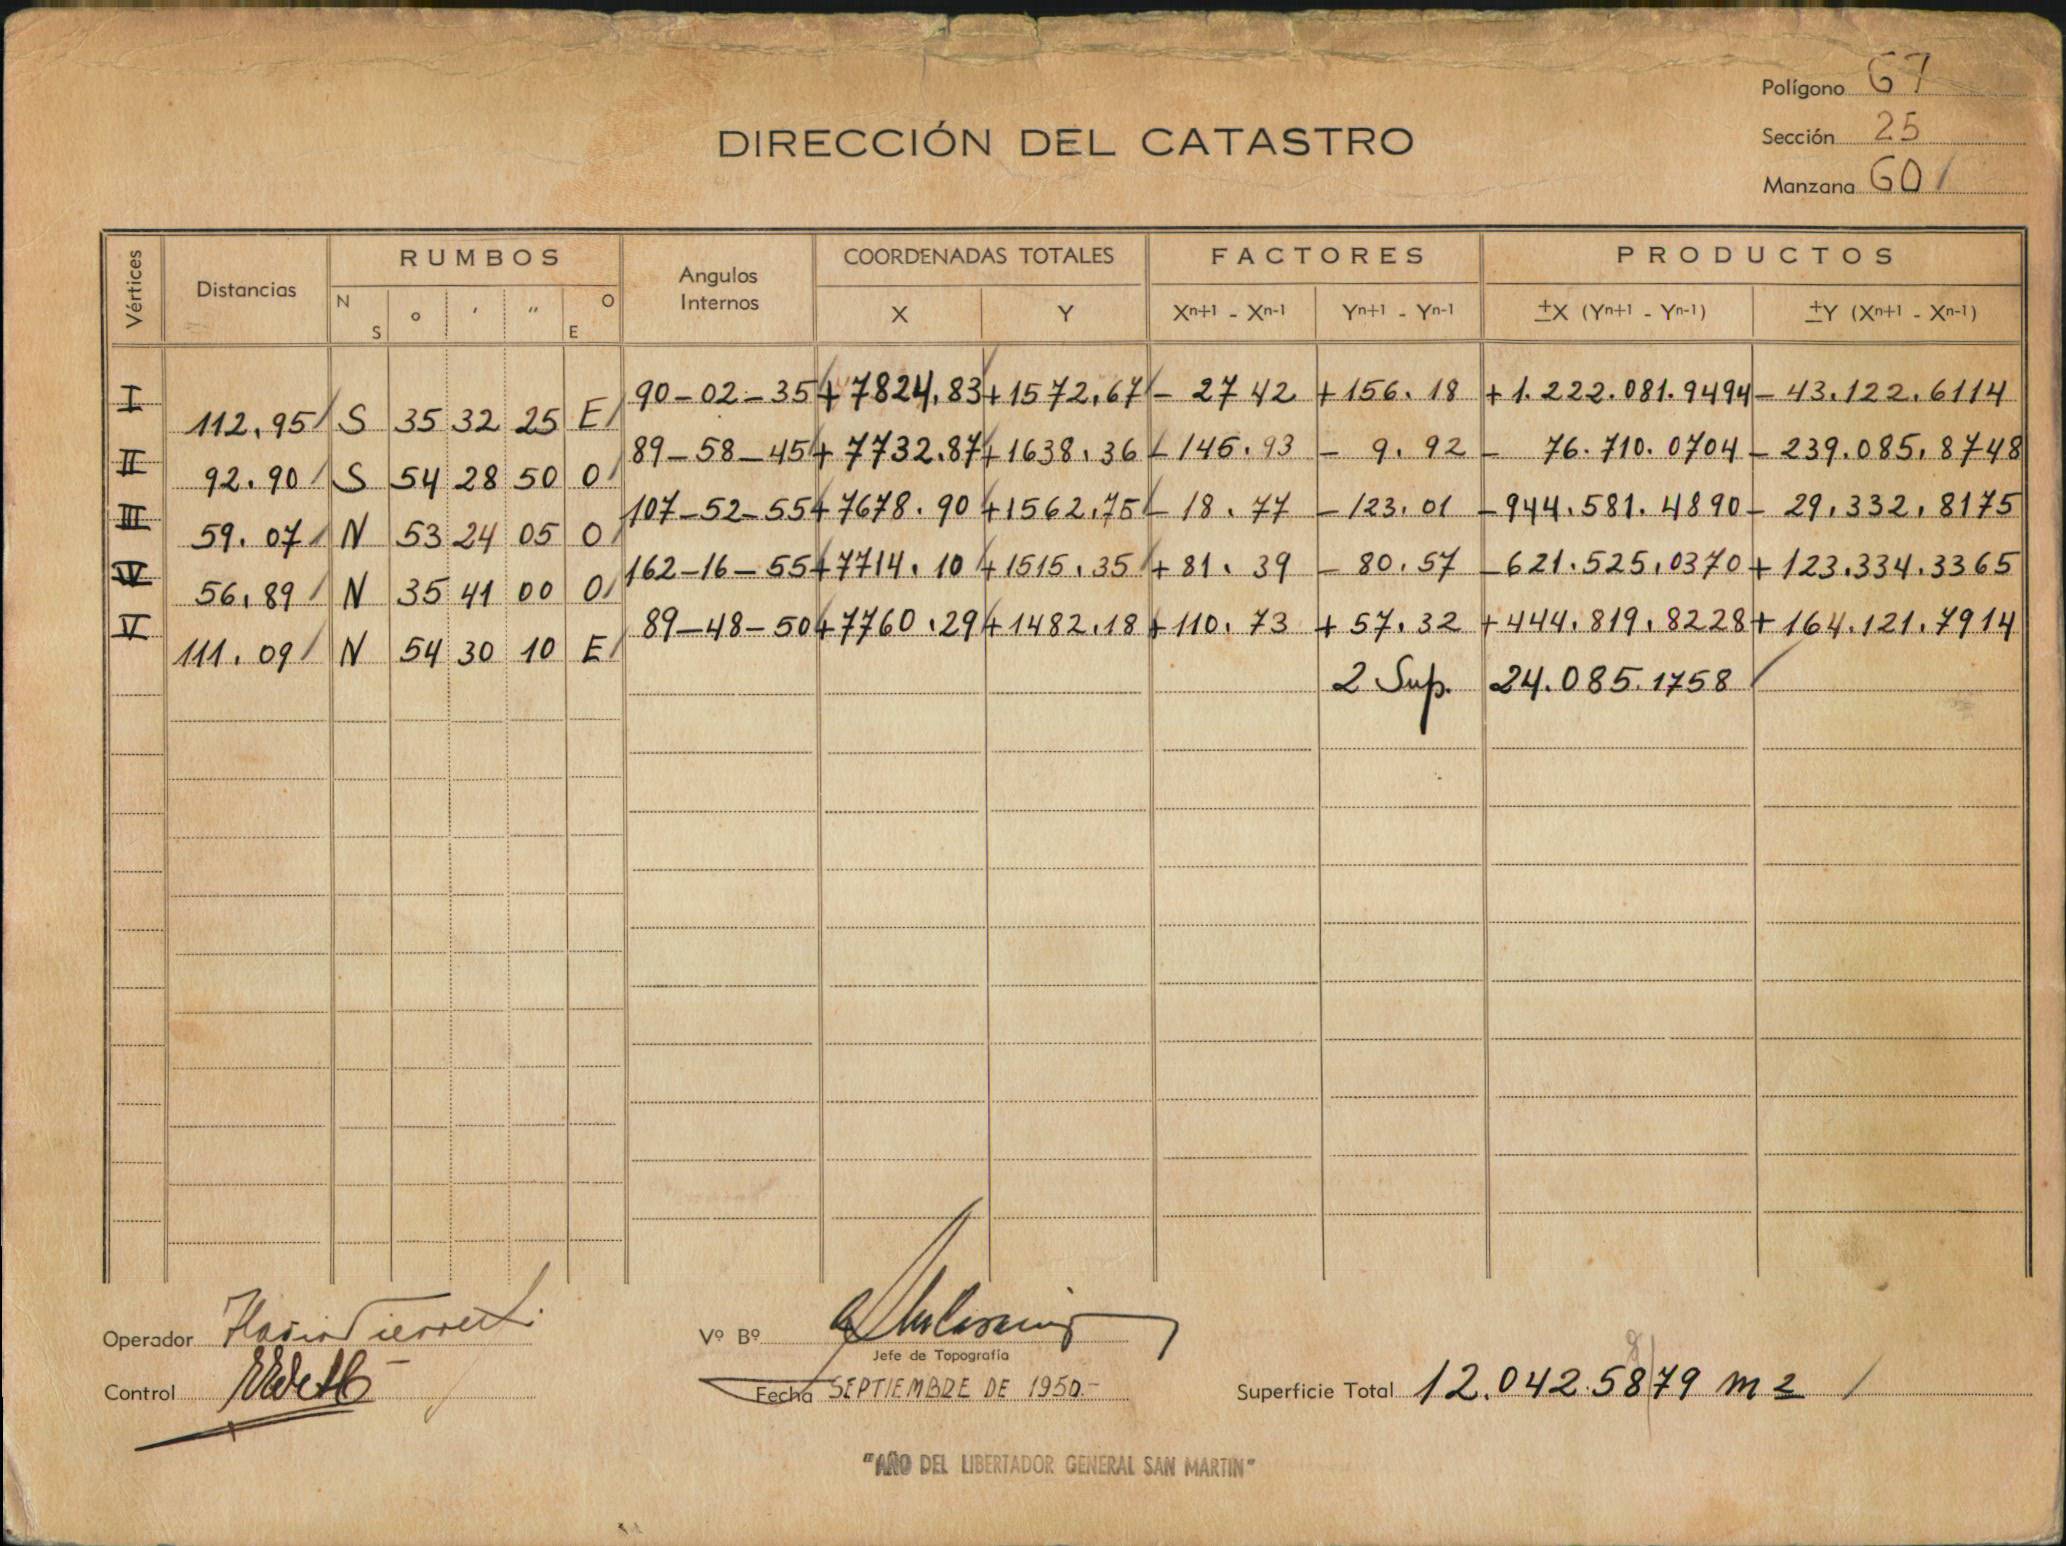 Polígono 67
DIRECCIÓN DEL CATASTRO
Sección 25
Manzana 60 /
Vértices Distancias RUMBOS Angulos Internos COORDENADAS TOTALES FACTORES PRODUCTOS
N S o ' " O E X Y Xn+1 - Xn-1 Yn+1 - Yn-1 ±X (Yn+1 - Yn-1) ±Y (Xn+1 - Xn-1)
I 90-02-35 +7824.83 +1572.67 - 27 42 +156.18 +1.222.081.9494 - 43.122.6114
112.95 S 35 32 25 E
II 89-58-45 +7732.87 +1638.36 - 145.93 - 9.92 - 76.710.0704 - 239.085.8748
92.90 S 54 28 50 O
III 107-52-55 +7678.90 +1562.75 - 18.77 - 123.01 - 944.581.4890 - 29.332.8175
59.07 N 53 24 05 O
IV 162-16-55 +7714.10 +1515.35 + 81.39 - 80.57 - 621.525.0370 + 123.334.3365
56.89 N 35 41 00 O
V 89-48-50 +7760.29 +1482.18 + 110.73 + 57.32 + 444.819.8228 + 164.121.7914
111.09 N 54 30 10 E
2 Sup. 24.085.1758
Operador
Vº Bº
Jefe de Topografía
Control
Fecha SEPTIEMBRE DE 1950.-
Superficie Total 12.042.5879 m2
"AÑO DEL LIBERTADOR GENERAL SAN MARTIN"